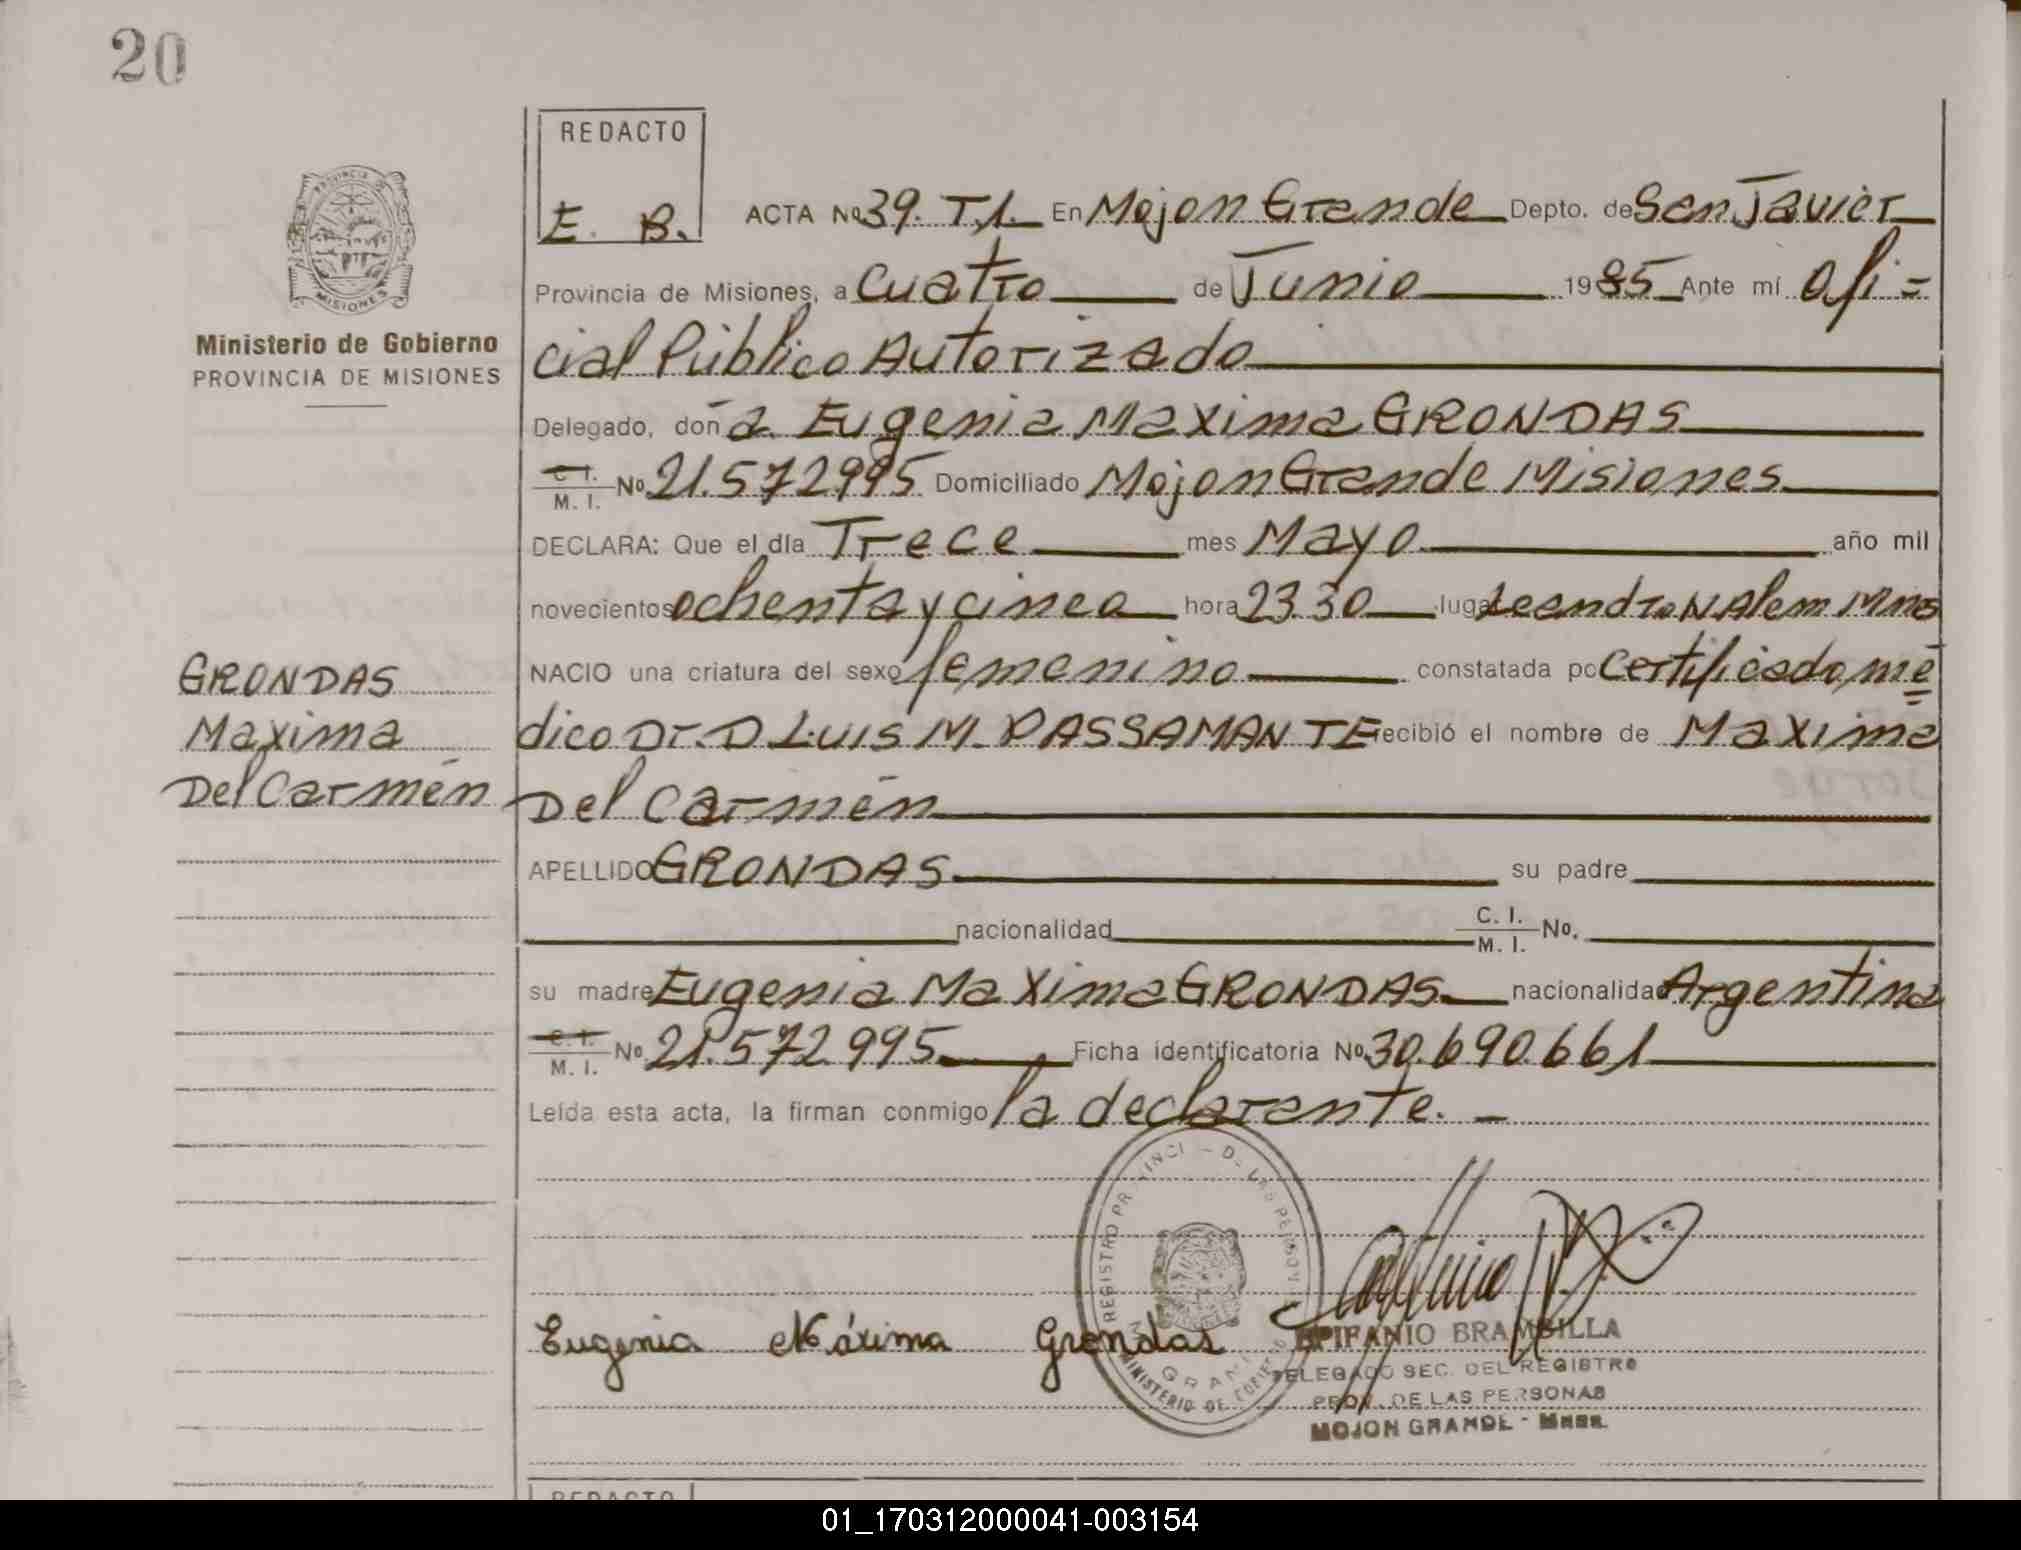 20
REDACTO
E. B.
PROVINCIA DE
MISIONES
Ministerio de Gobierno
PROVINCIA DE MISIONES
ACTA No 39. T.1. En Mojon Grande Depto. de San Javier
Provincia de Misiones, a Cuatro de Junio 1985 Ante mí Ofi=
cial Público Autorizado
Delegado, doña Eugenia Maxima GRONDAS
C. I. / M. I. No 21.572995 Domiciliado Mojon Grande Misiones
DECLARA: Que el día Trece mes Mayo año mil
novecientos ochenta y cinco hora 23.30 lugar Leandro N Alem Mnes
NACIO una criatura del sexo femenino constatada po Certificado mé
dico Dr. D LUIS M. PASSAMANTE recibió el nombre de Maxima
Del Carmén
GRONDAS
Maxima
Del Carmén
APELLIDO GRONDAS su padre
nacionalidad C. I. / M. I. No.
su madre Eugenia Maxima GRONDAS nacionalidad Argentina
C. I. / M. I. No 21.572.995 Ficha identificatoria No 30.690.661
Leída esta acta, la firman conmigo la declarante.
Eugenia Máxima Grondas
EPIFANIO BRAMBILLA
DELEGADO SEC. DEL REGISTRO
PROV. DE LAS PERSONAS
MOJON GRANDE - Mnes.
REDACTO
01_170312000041-003154